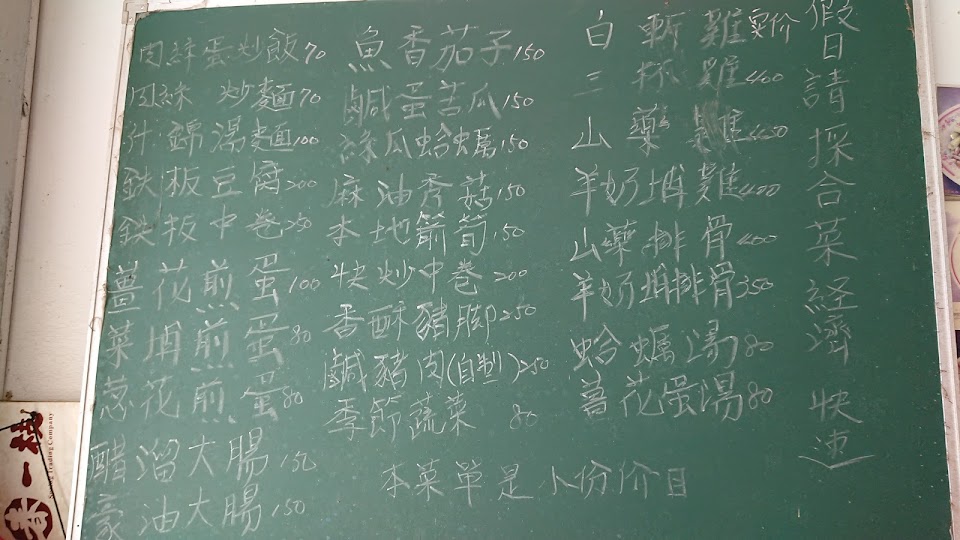 肉絲蛋炒飯70
肉絲 炒麵70
什錦湯麵100
鉄板豆腐200
鉄板中卷250
薑花煎蛋100
菜埔煎蛋80
葱花煎蛋80
醋溜大腸150
豪油大腸150
魚香茄子150
鹹蛋苦瓜150
絲瓜蛤蠣150
麻油香菇150
本地箭筍150
快炒中卷200
香酥豬脚250
鹹豬肉(自製)250
季節蔬菜 80
白斬雞实价
三杯雞400
山藥雞450
羊奶埔雞400
山藥排骨400
羊奶埔排骨350
蛤蠣湯80
薑花蛋湯80
本菜單是小份价目
假日請採合菜経濟快速